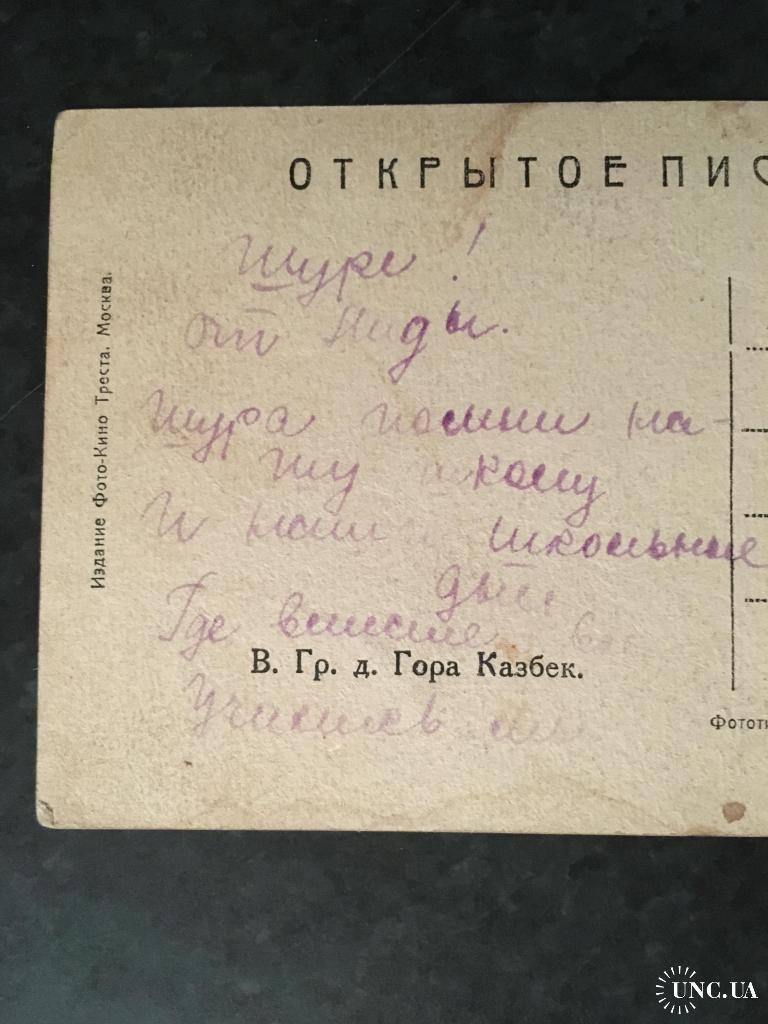 ОТКРЫТОЕ ПИС
Издание Фото-Кино Треста. Москва.
Шуре!
от Лиды.
Шура помни на-
шу школу
И наши школьные
дни
Где вместе
Учились мы
В. Гр. д. Гора Казбек.
Фототи
UNC.UA